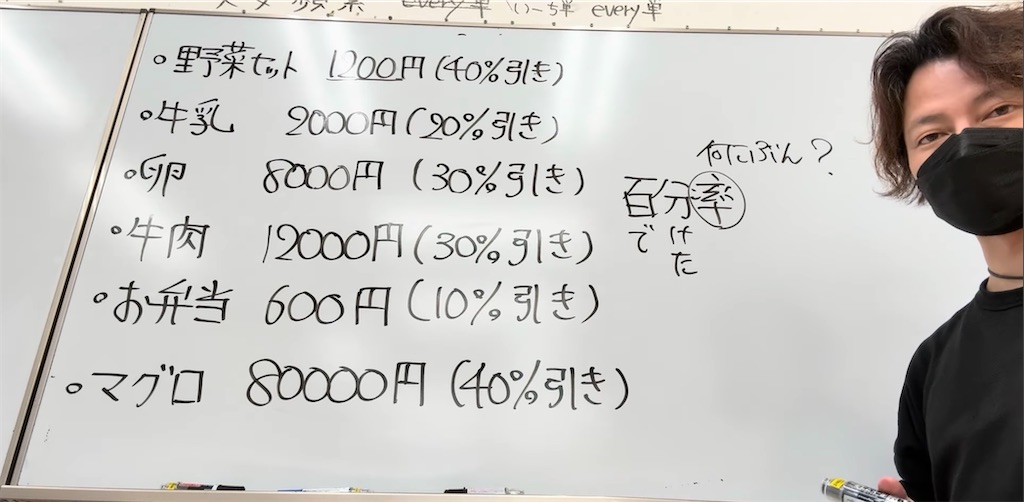 every単 いーち単 every単
・野菜セット 1200円(40%引き)
・牛乳 2000円(20%引き)
・卵 8000円(30%引き)
・牛肉 12000円(30%引き)
・お弁当 600円(10%引き)
・マグロ 80000円(40%引き)
何こぶん?
百分率
で けた